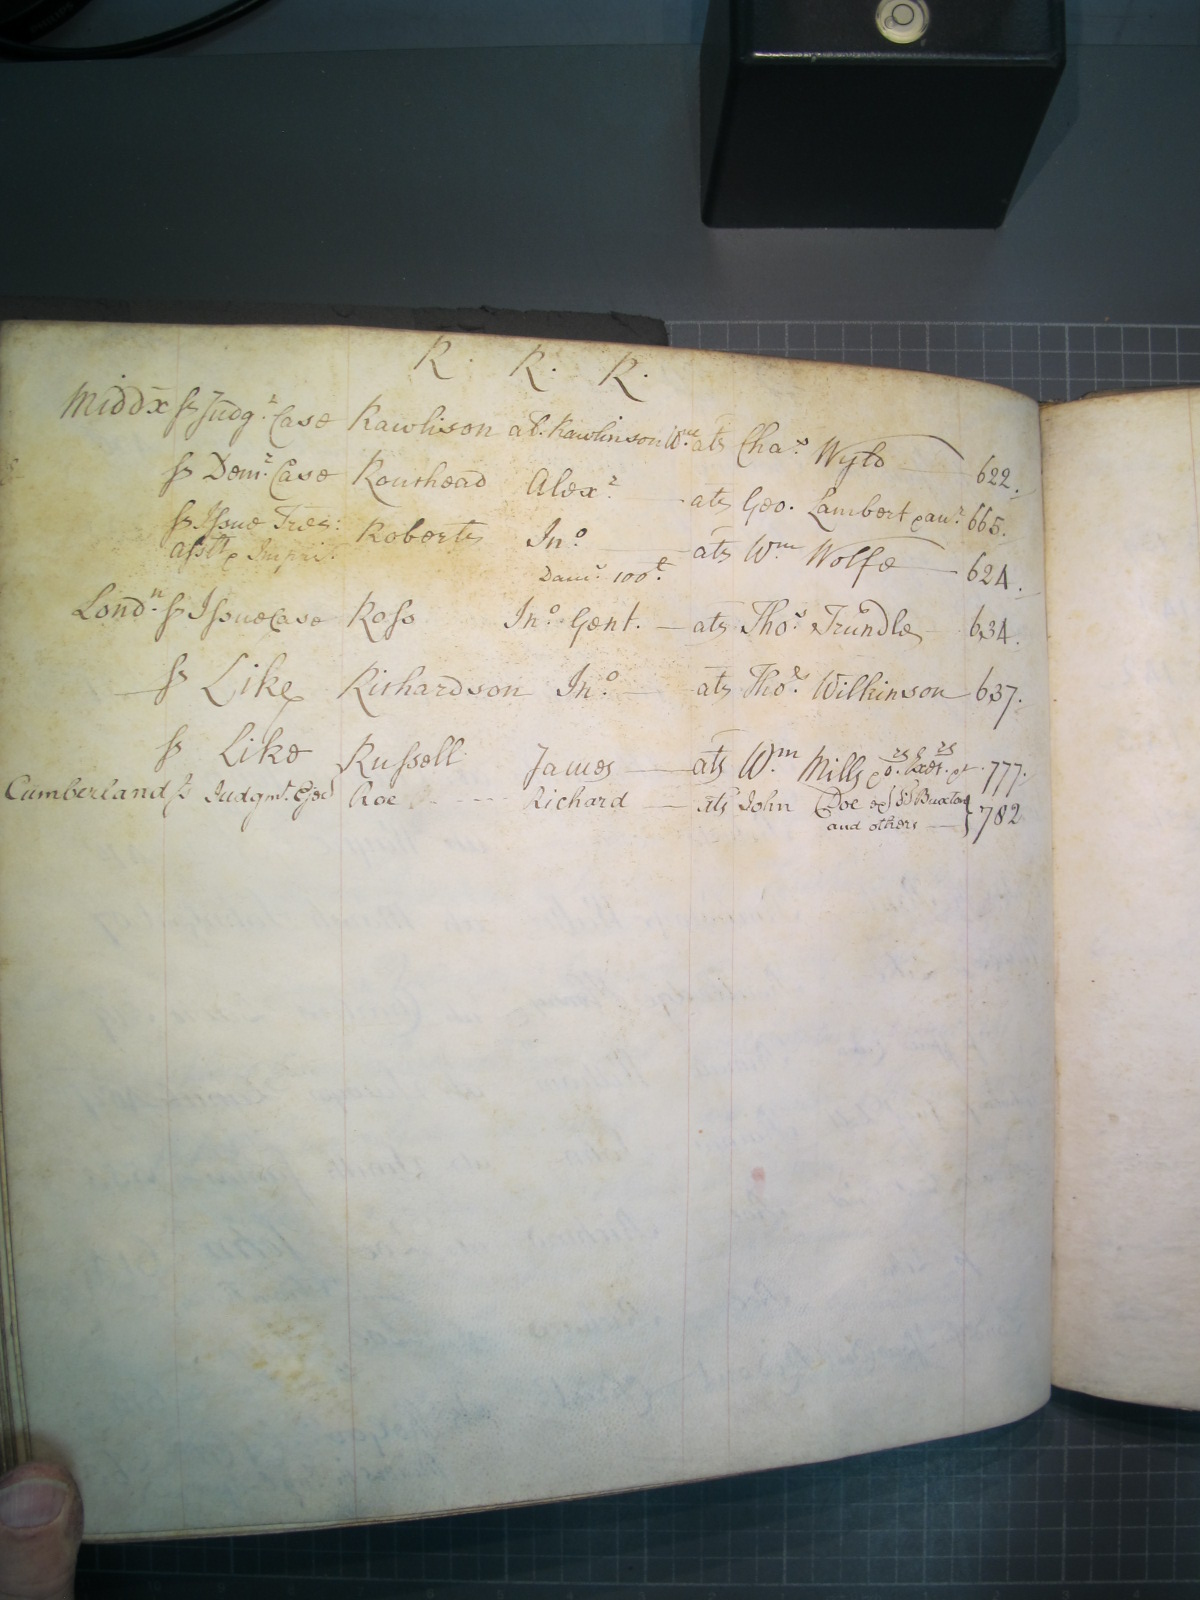 R. R. R.
Middx ss Judgr. Case Rawlison als. Rawlinson Wm. ats Chas. Wyld 622.
ss Demr. Case Roushead Alexr. ats Geo. Lambert & anr. 665.
ss Issue Tres:
asslt & Impris: Roberts Jno. ats Wm. Wolfe 624.
Dams. 100£.
Londn. ss Issue Case Ross Jno. Gent. ats Thos. Trundle 634.
ss Like Richardson Jno. ats Thos. Wilkinson 637.
ss Like Russell James ats Wm. Mills & ors. Exors. 777.
Cumberland ss Judgmt. Ejec Roe Richard ats John Doe Buxton
and others 782